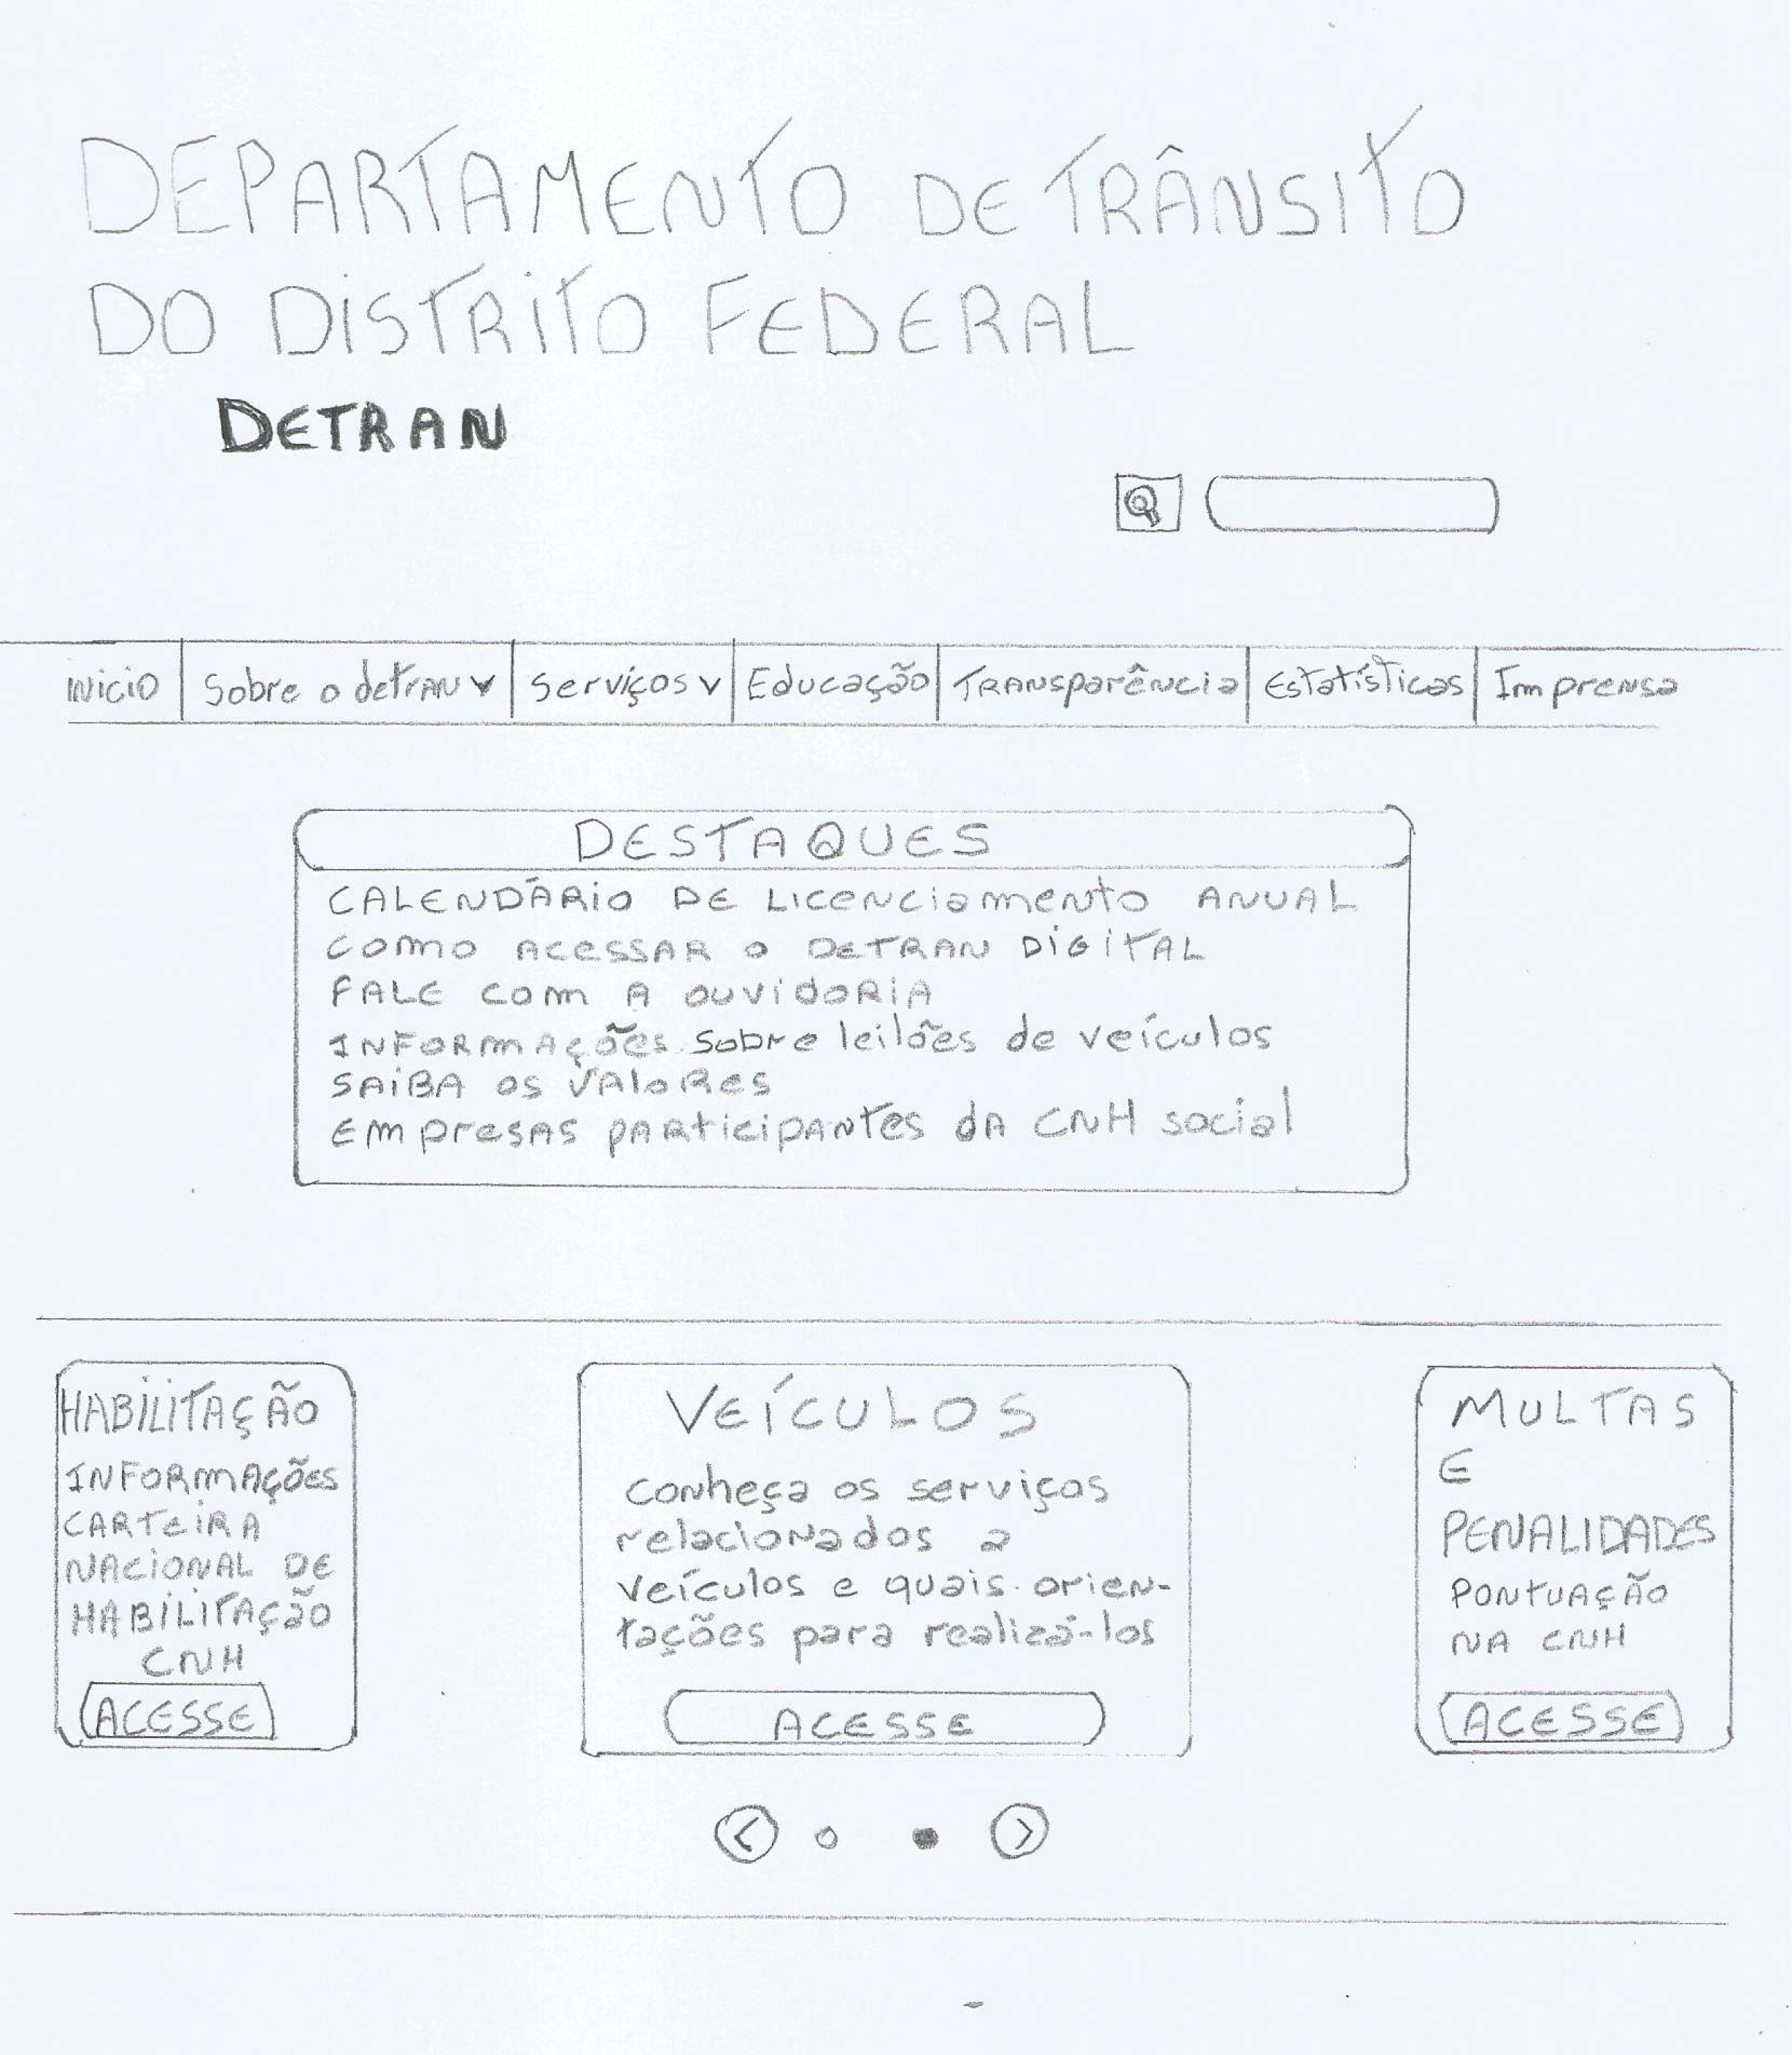 DEPARTAMENTO DE TRÂNSITO
DO DISTRITO FEDERAL
DETRAN
INICIO | Sobre o detran v | Serviços v | Educação | TRANSparência | Estatísticas | Imprensa
DESTAQUES
CALENDÁRIO DE LICENCIAMENTO ANUAL
COMO ACESSAR O DETRAN DIGITAL
FALE COM A OUVIDORIA
INFORMAÇÕES sobre leilões de veículos
SAIBA OS VALORES
EMPRESAS PARTICIPANTES DA CNH social
HABILITAÇÃO
INFORMAÇÕES
CARTEIRA
NACIONAL DE
HABILITAÇÃO
CNH
ACESSE
VEÍCULOS
conheça os serviços
relacionados a
veículos e quais orien-
tações para realizá-los
ACESSE
MULTAS
E
PENALIDADES
PONTUAÇÃO
NA CNH
ACESSE